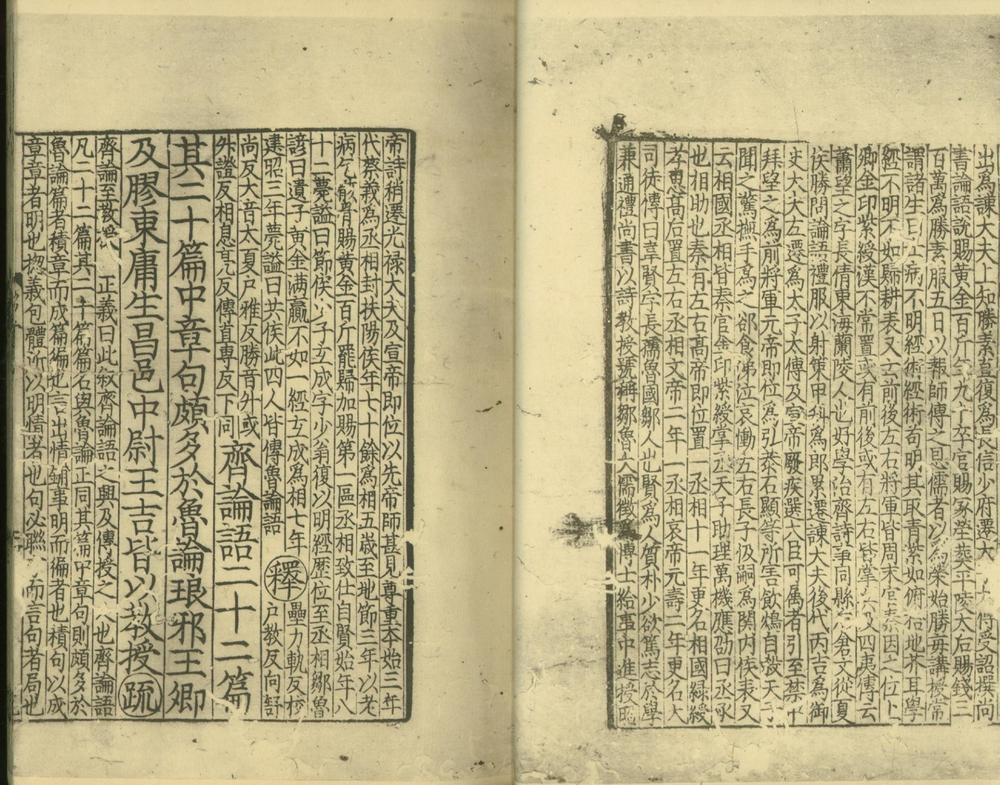 出為諫大夫上知勝素直復為長信少府遷太
書論語說賜黃金百斤年九十卒官賜冢塋葬平陵太后賜錢二
百萬為勝素服五日以報師傅之恩儒者以為榮始勝每講授常
謂諸生曰士病不明經術經術苟明其取青紫如俯拾地芥耳學
經不明不如歸耕表又云前後左右將軍皆周末官秦因之位上
卿金印紫綬漢不常置或有前後或有左右皆掌兵及四夷傅云
蕭望之字長倩東海蘭陵人也好學治齊詩事同縣后倉又從夏
侯勝問論語禮服以射策甲科為郎累遷諫大夫後代丙吉為御
史大夫左遷為太子太傅及宣帝寢疾選大臣可屬者引至禁中
拜望之為前將軍元帝即位為弘恭石顯等所害飲鴆自殺天子
聞之驚撫手為之卻食涕泣哀慟左右長子伋嗣為関内侯表又
云相國丞相皆秦官金印紫綬掌丞天子助理萬機應劭曰丞承
也相助也秦有左右高帝即位置一丞相十一年更名相國緑綬
孝惠高后置左右丞相文帝二年一丞相哀帝元壽二年更名大
司徒傳曰韋賢字長孺魯國鄒人也賢為人質朴少欲篤志於學
兼通禮尚書以詩教授號稱鄒魯大儒徵博士給事中進授昭
帝詩稍遷光禄大夫及宣帝即位以先帝師甚見尊重本始三年
代蔡義為丞相封扶陽侯年七十餘為相五歲至地節三年以老
病乞骸骨賜黃金百斤罷歸加賜第一區丞相致仕自賢始年八
十二薨謚曰節侯少子玄成字少翁復以明經歷位至丞相鄒魯
諺曰遺子黃金滿籯不如一經玄成為相七年
建昭三年薨謚曰共侯此四人皆傳魯論語 釋 壘力軌反校
尚反大音太夏户雅反勝音升或户教反向舒
升證反相息亮反傳直專反下同 齊論語二十二篇
其二十篇中章句頗多於魯論琅邪王卿
及膠東庸生昌邑中尉王吉皆以教授 疏
齊論至教授 正義曰此叙齊論語之興及傳授之人也齊論語
凡二十二篇其二十篇篇名與魯論正同其篇中章句則頗多於
魯論篇者積章而成篇徧也言出情鋪事明而徧者也積句以成
章章者明也揔義包體所以明情者也句必聯而言句者局也